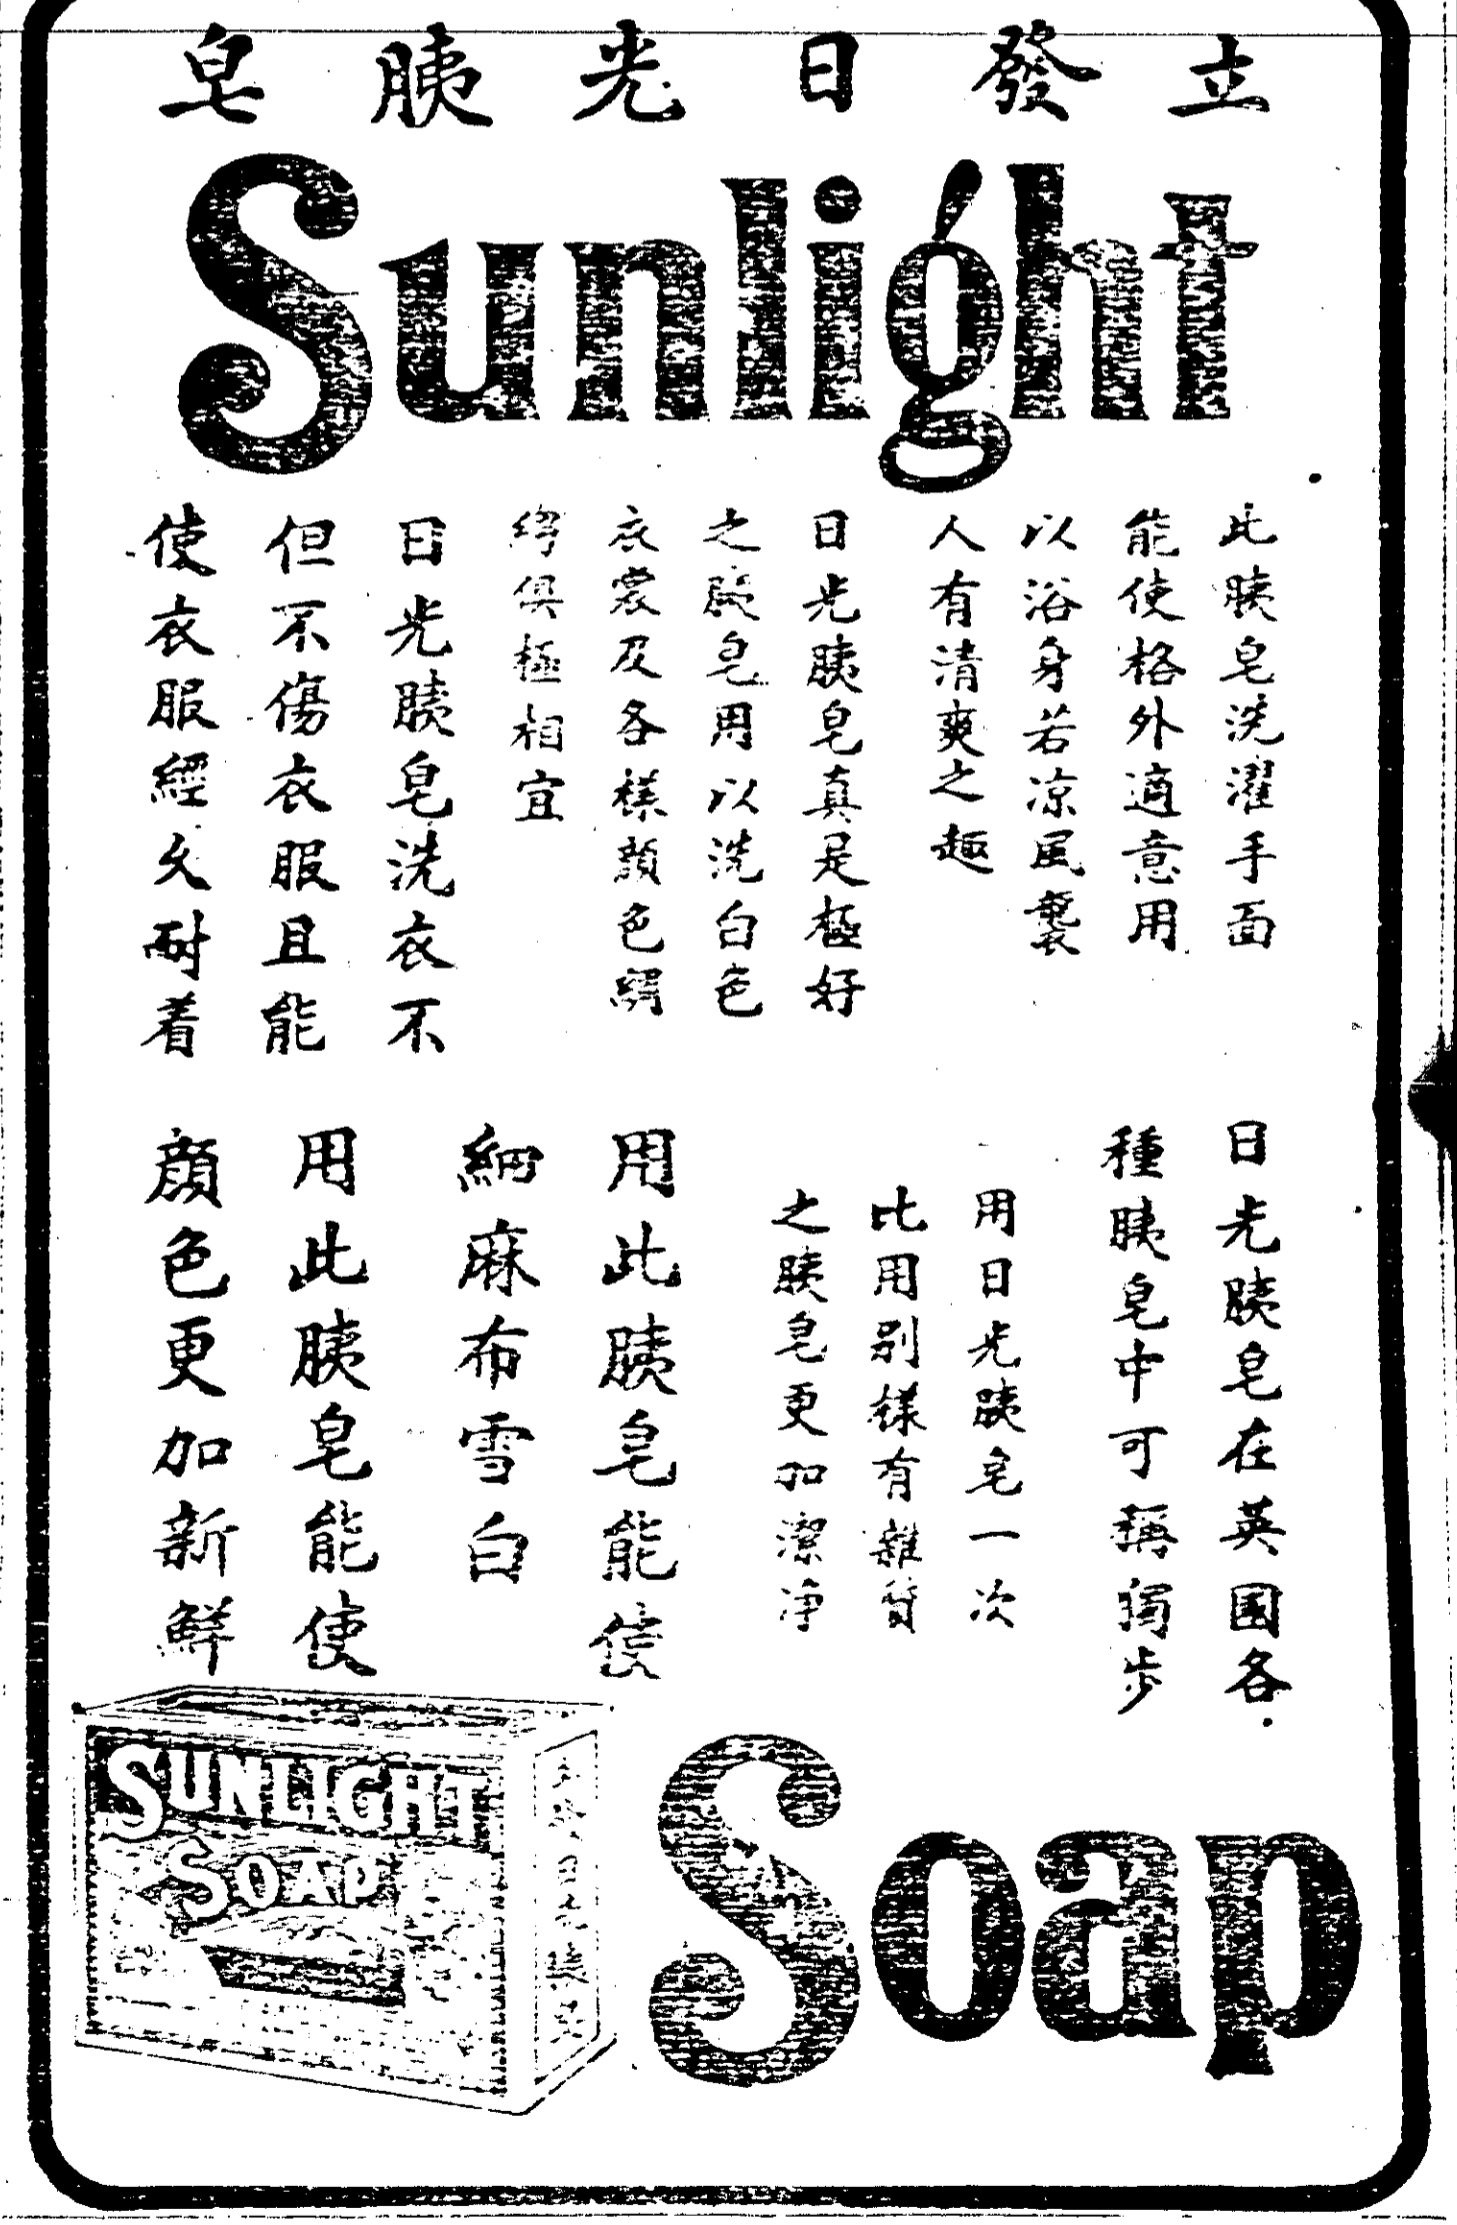 立發日光胰皂
Sunlight
此胰皂洗濯手面
能使格外適意用
以浴身若凉風襲
人有清爽之趣
日光胰皂真是極好
之胰皂用以洗白色
衣裳及各樣顔色綢
俱極相宜
日光胰皂洗衣不
但不傷衣服且能
使衣服經久耐着
日光胰皂在英国各
種胰皂中可稱獨步
用日光胰皂一次
比用别様有雜質
之胰皂更加潔净
用此胰皂能使
細麻布雪白
用此胰皂能使
顔色更加新鮮
SUNLIGHT
SOAP
Soap